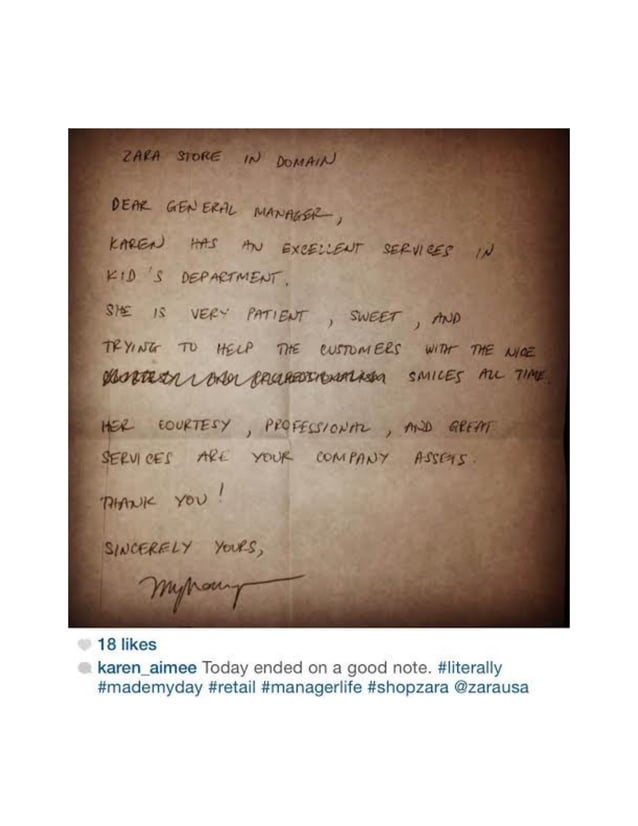 ZARA STORE IN DOMAIN
DEAR GENERAL MANAGER,
KAREN HAS AN EXCELLENT SERVICES IN
KID'S DEPARTMENT.
SHE IS VERY PATIENT, SWEET, AND
TRYING TO HELP THE CUSTOMERS WITH THE NICE
SMILES ALL TIME.
HER COURTESY, PROFESSIONAL, AND GREAT
SERVICES ARE YOUR COMPANY ASSETS.
THANK YOU!
SINCERELY YOURS,
18 likes
karen_aimee Today ended on a good note. #literally
#mademyday #retail #managerlife #shopzara @zarausa